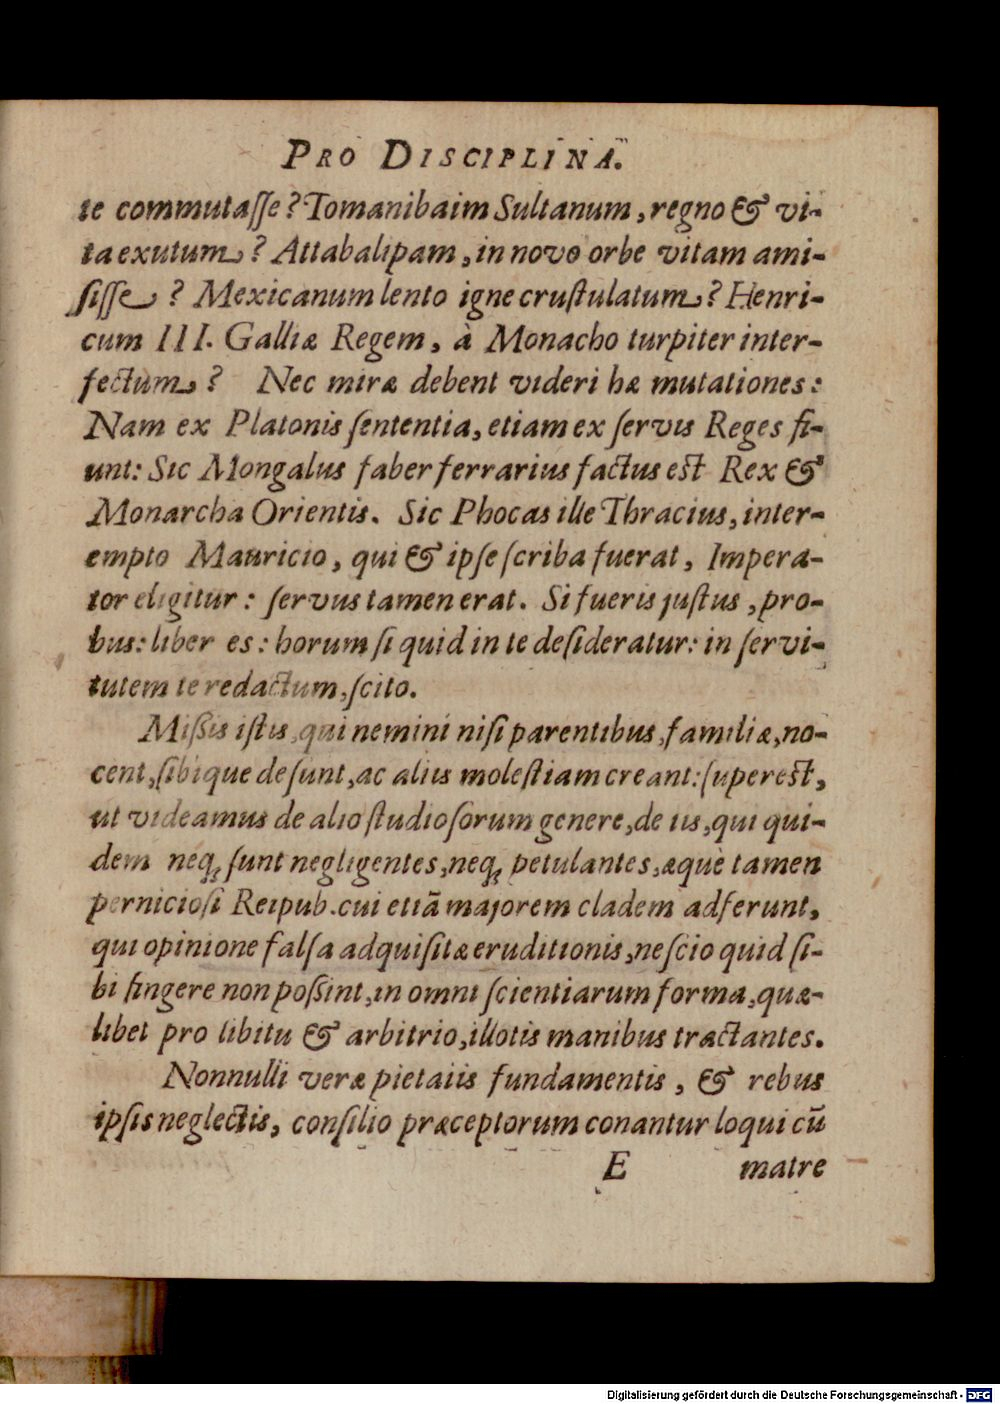 PRO DISCIPLINA.
te commutaſſe? Tomanibaim Sultanum, regno & vi-
ta exutum? Attabalipam, in novo orbe vitam ami-
ſiſſe? Mexicanum lento igne cruſtulatum? Henri-
cum III. Galliæ Regem, à Monacho turpiter inter-
fectum? Nec miræ debent videri hæ mutationes:
Nam ex Platonis ſententia, etiam ex ſervis Reges fi-
unt: Sic Mongalus faber ferrarius factus est Rex &
Monarcha Orientis. Sic Phocas ille Thracius, inter-
empto Mauricio, qui & ipſe ſcriba fuerat, Impera-
tor eligitur: ſervus tamen erat. Si fueris juſtus, pro-
bus: liber es: horum ſi quid in te deſideratur: in ſervi-
tutem te redactum, ſcito.
Miſſis iſtis, qui nemini niſi parentibus, familiæ, no-
cent, ſibique deſunt, ac aliis moleſtiam creant: ſupereſt,
ut videamus de alio ſtudioſorum genere, de iis, qui qui-
dem neq; ſunt negligentes, neq; petulantes, æquè tamen
pernicioſi Reipub. cui etiā majorem cladem adferunt,
qui opinione falſa adquiſitæ eruditionis, neſcio quid ſi-
bi fingere non poſſint, in omni ſcientiarum forma, quæ-
libet pro libitu & arbitrio, illotis manibus tractantes.
Nonnulli veræ pietatis fundamentis, & rebus
ipſis neglectis, conſilio præceptorum conantur loqui cū
E matre
Digitalisierung gefördert durch die Deutsche Forschungsgemeinschaft - DFG